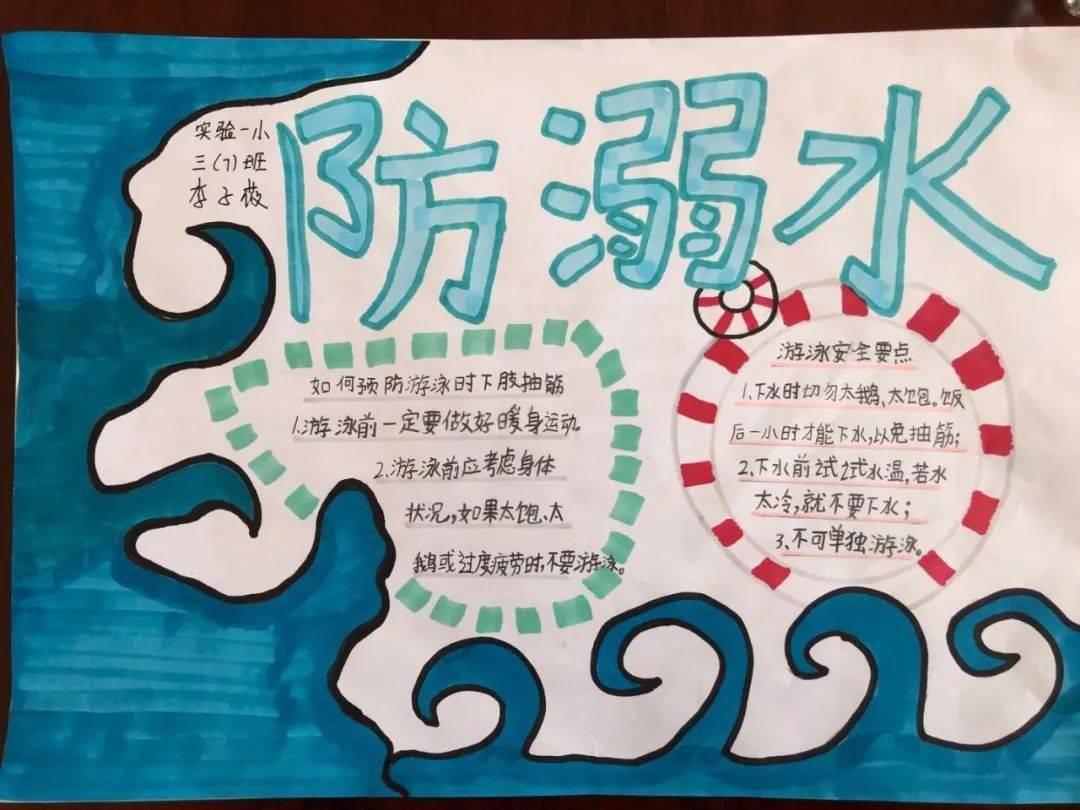 防溺水
实验一小
三(7)班
李子
如何预防游泳时下肢抽筋
1.游泳前一定要做好暖身运动。
2.游泳前应考虑身体
状况,如果太饱、太
鹅或过度疲劳时,不要游泳。
游泳安全要点
1、下水时切勿太鹅、太饱。饭
后一小时才能下水,以免抽筋;
2、下水前试试水温,若水
太冷,就不要下水;
3、不可单独游泳。